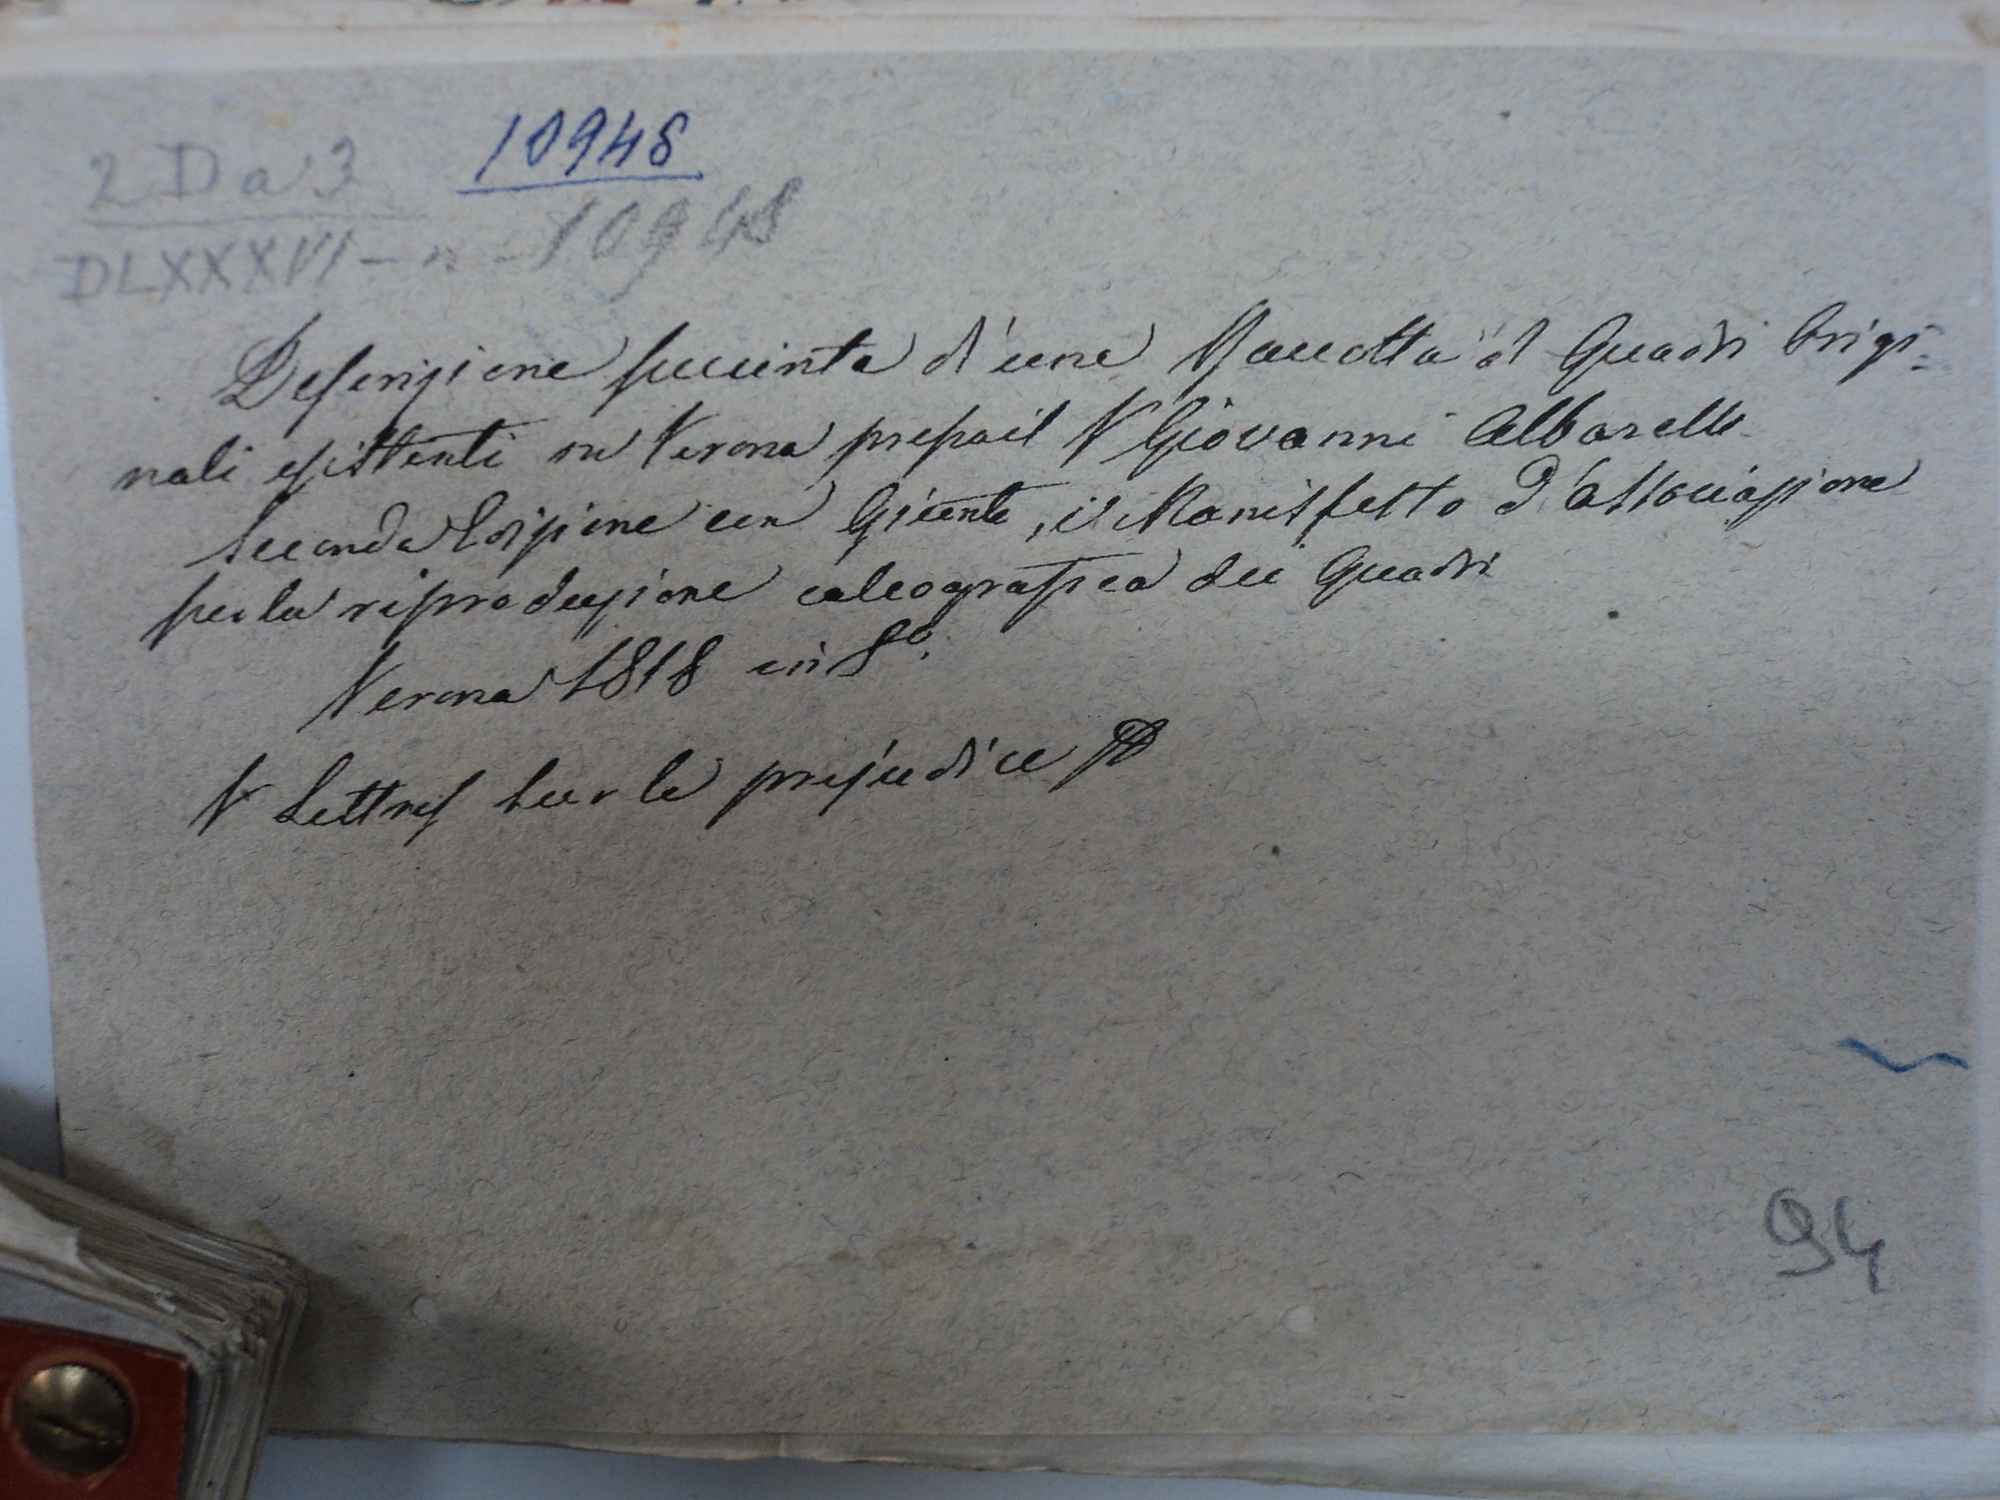 2 D a 3 10948
DLXXXVI - n - 10948
Descrizione succinta d'una Raccolta di Quadri Origi-
nali esistenti in Verona presso il N Giovanni Albarelli
Seconda Edizione con Giunte, il Manisfesto d'associazione
per la riproduzione calcografica dei Quadri
Verona 1818 in 8º.
V Lettres sur le préjudice
94